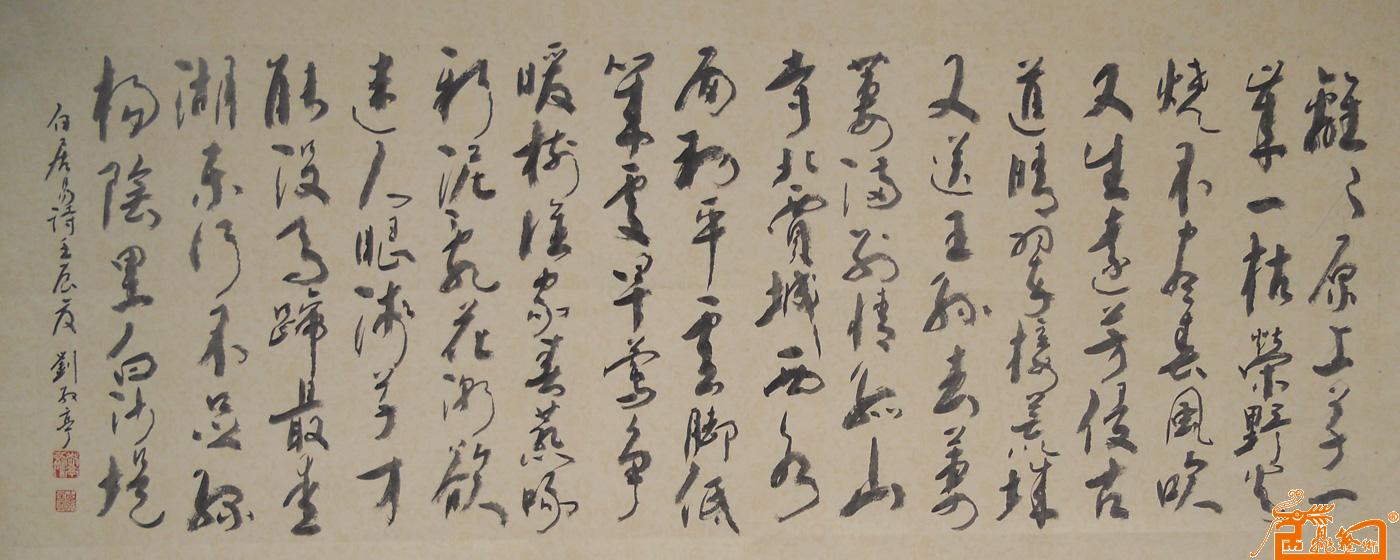 離々原上草一
歲一枯榮野火
燒不盡春風吹
又生遠芳侵古
道晴翠接荒城
又送王孫去萋
萋滿別情孤山
寺北賈城西水
面初平雲腳低
幾處早鶯爭
暖樹誰家春燕啄
新泥亂花漸欲
迷人眼淺草才
能沒馬蹄最愛
湖東行不足綠
楊陰里白沙堤
白居易詩壬辰夏 劉亭